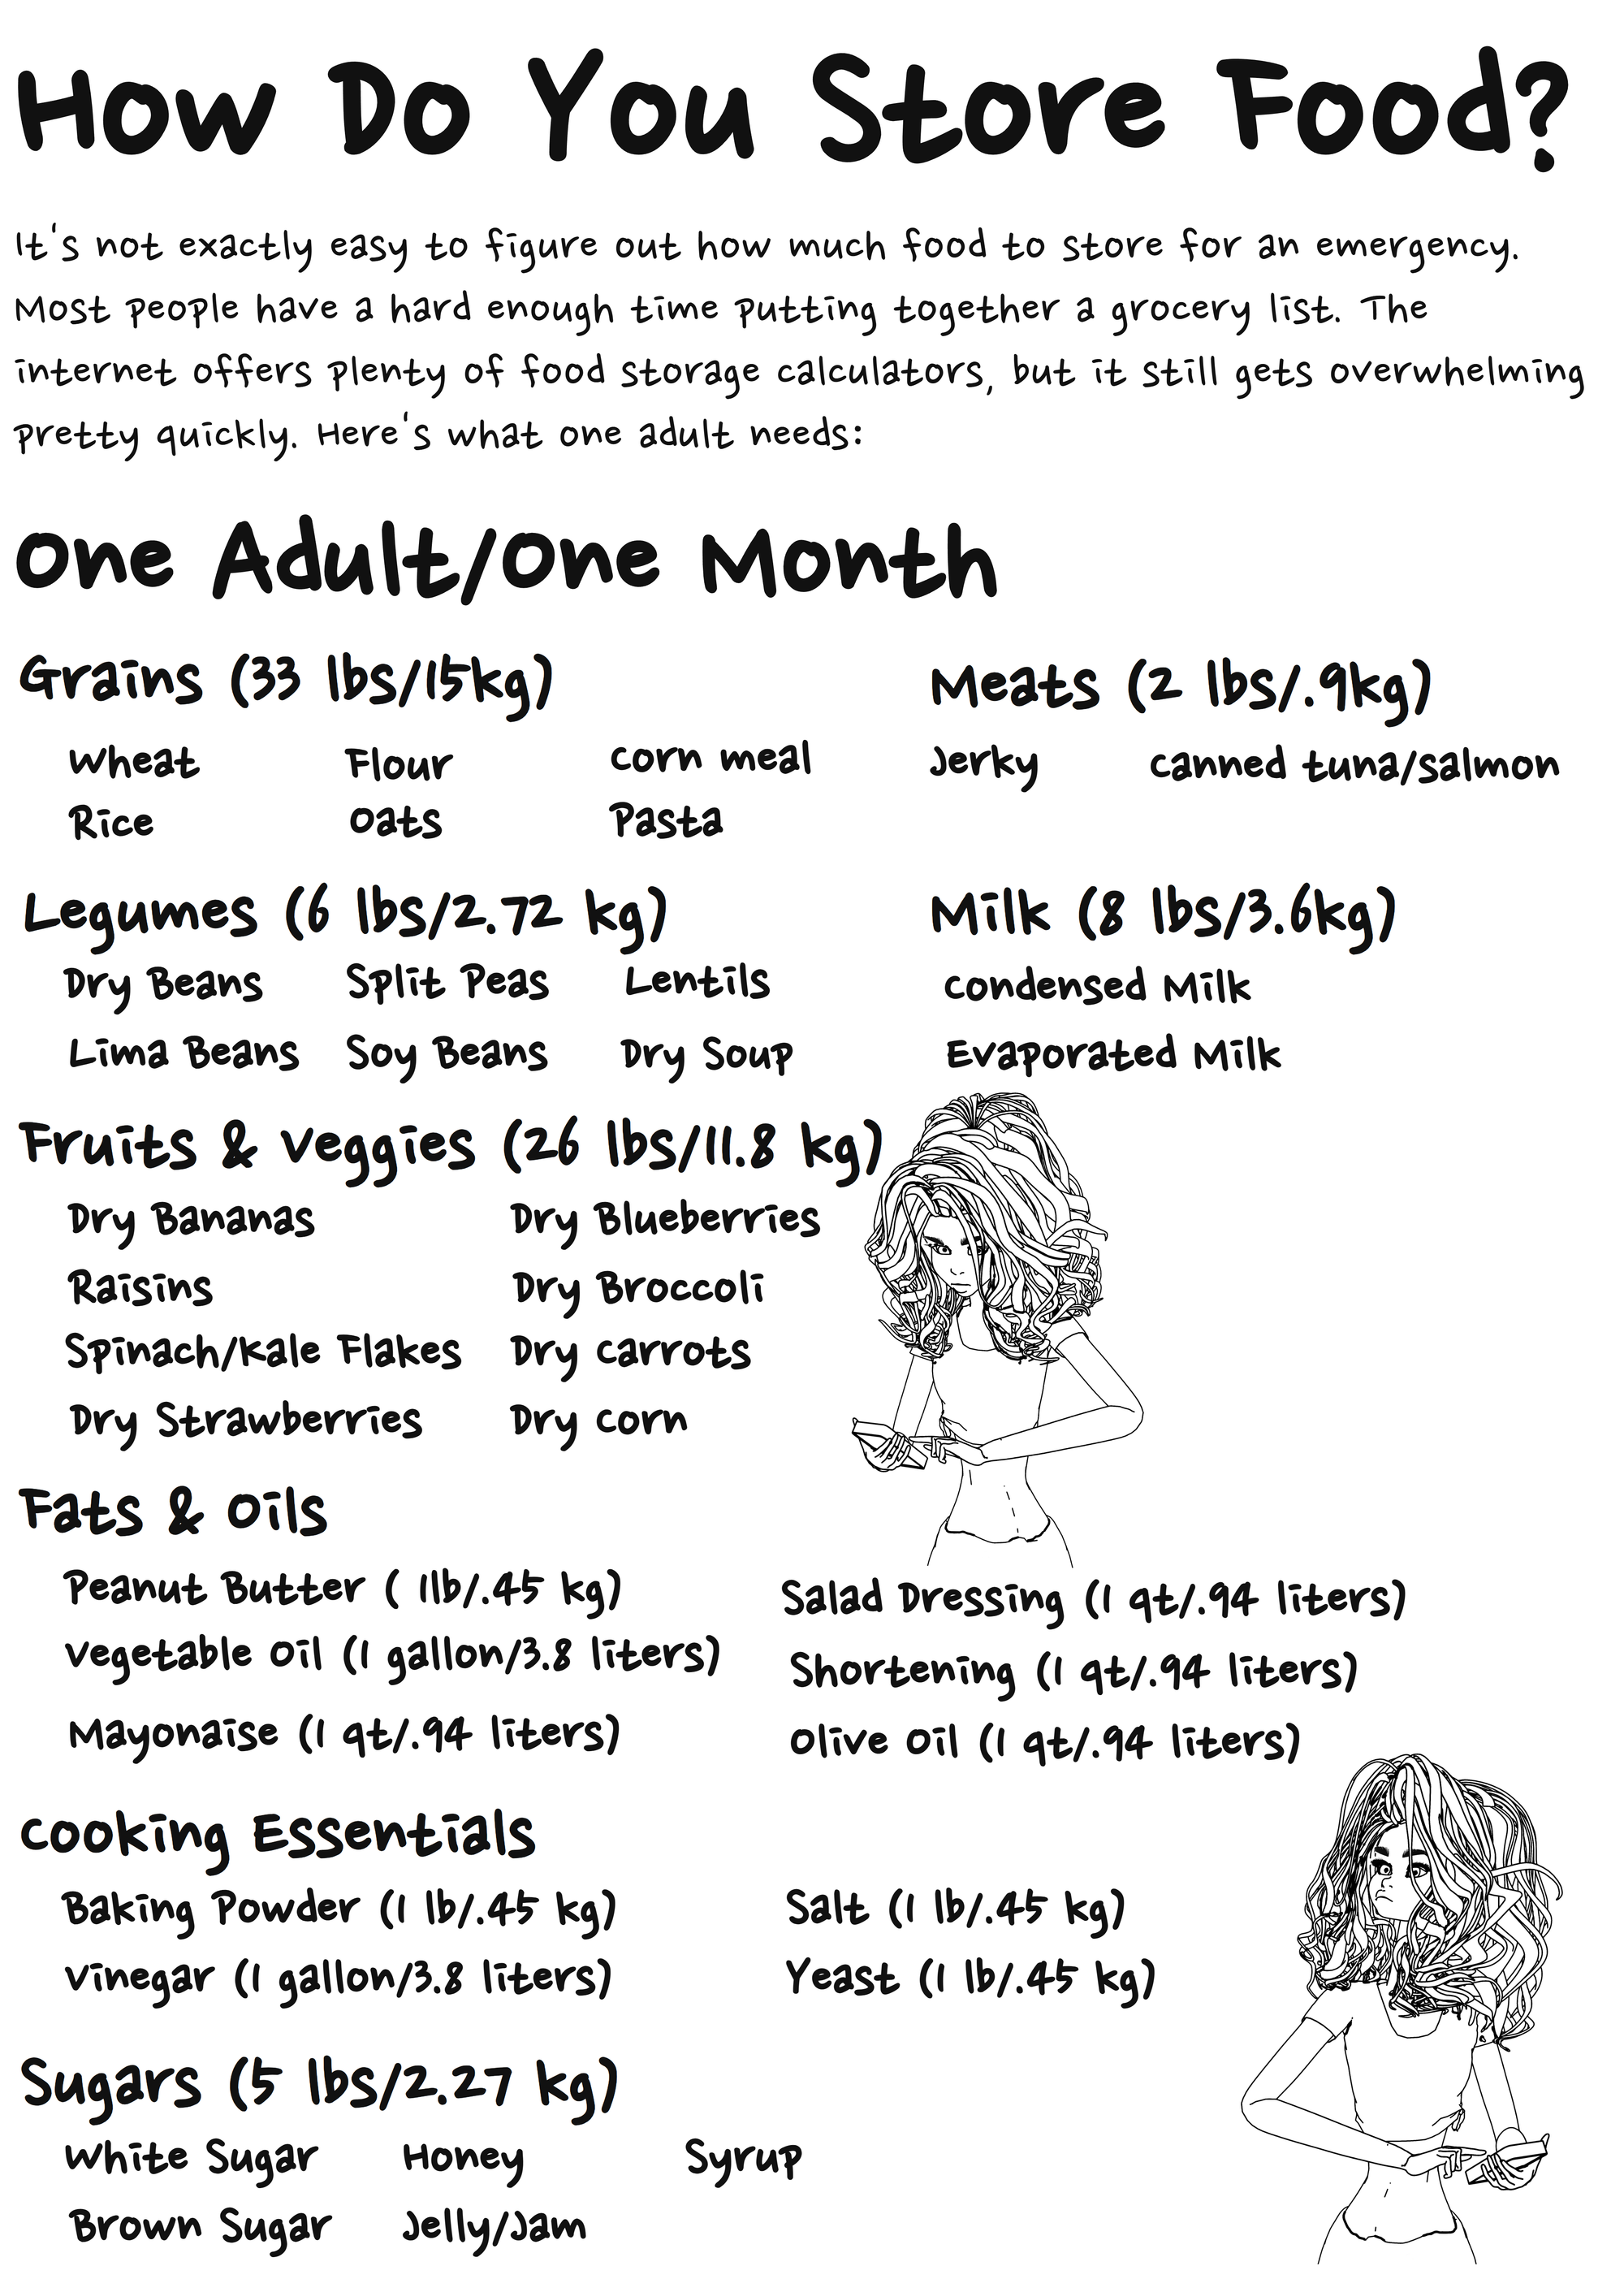 How Do You Store Food?
It's not exactly easy to figure out how much food to store for an emergency.
Most people have a hard enough time putting together a grocery list. The
internet offers plenty of food storage calculators, but it still gets overwhelming
pretty quickly. Here's what one adult needs:
One Adult/One Month
Grains (33 lbs/15kg)
Wheat Flour Corn meal
Rice Oats Pasta
Meats (2 lbs/.9kg)
Jerky Canned tuna/salmon
Legumes (6 lbs/2.72 kg)
Dry Beans Split Peas Lentils
Lima Beans Soy Beans Dry Soup
Milk (8 lbs/3.6kg)
Condensed Milk
Evaporated Milk
Fruits & Veggies (26 lbs/11.8 kg)
Dry Bananas Dry Blueberries
Raisins Dry Broccoli
Spinach/Kale Flakes Dry Carrots
Dry Strawberries Dry Corn
Fats & Oils
Peanut Butter ( 1lb/.45 kg) Salad Dressing (1 qt/.94 liters)
Vegetable Oil (1 gallon/3.8 liters) Shortening (1 qt/.94 liters)
Mayonaise (1 qt/.94 liters) Olive Oil (1 qt/.94 liters)
Cooking Essentials
Baking Powder (1 lb/.45 kg) Salt (1 lb/.45 kg)
Vinegar (1 gallon/3.8 liters) Yeast (1 lb/.45 kg)
Sugars (5 lbs/2.27 kg)
White Sugar Honey Syrup
Brown Sugar Jelly/Jam